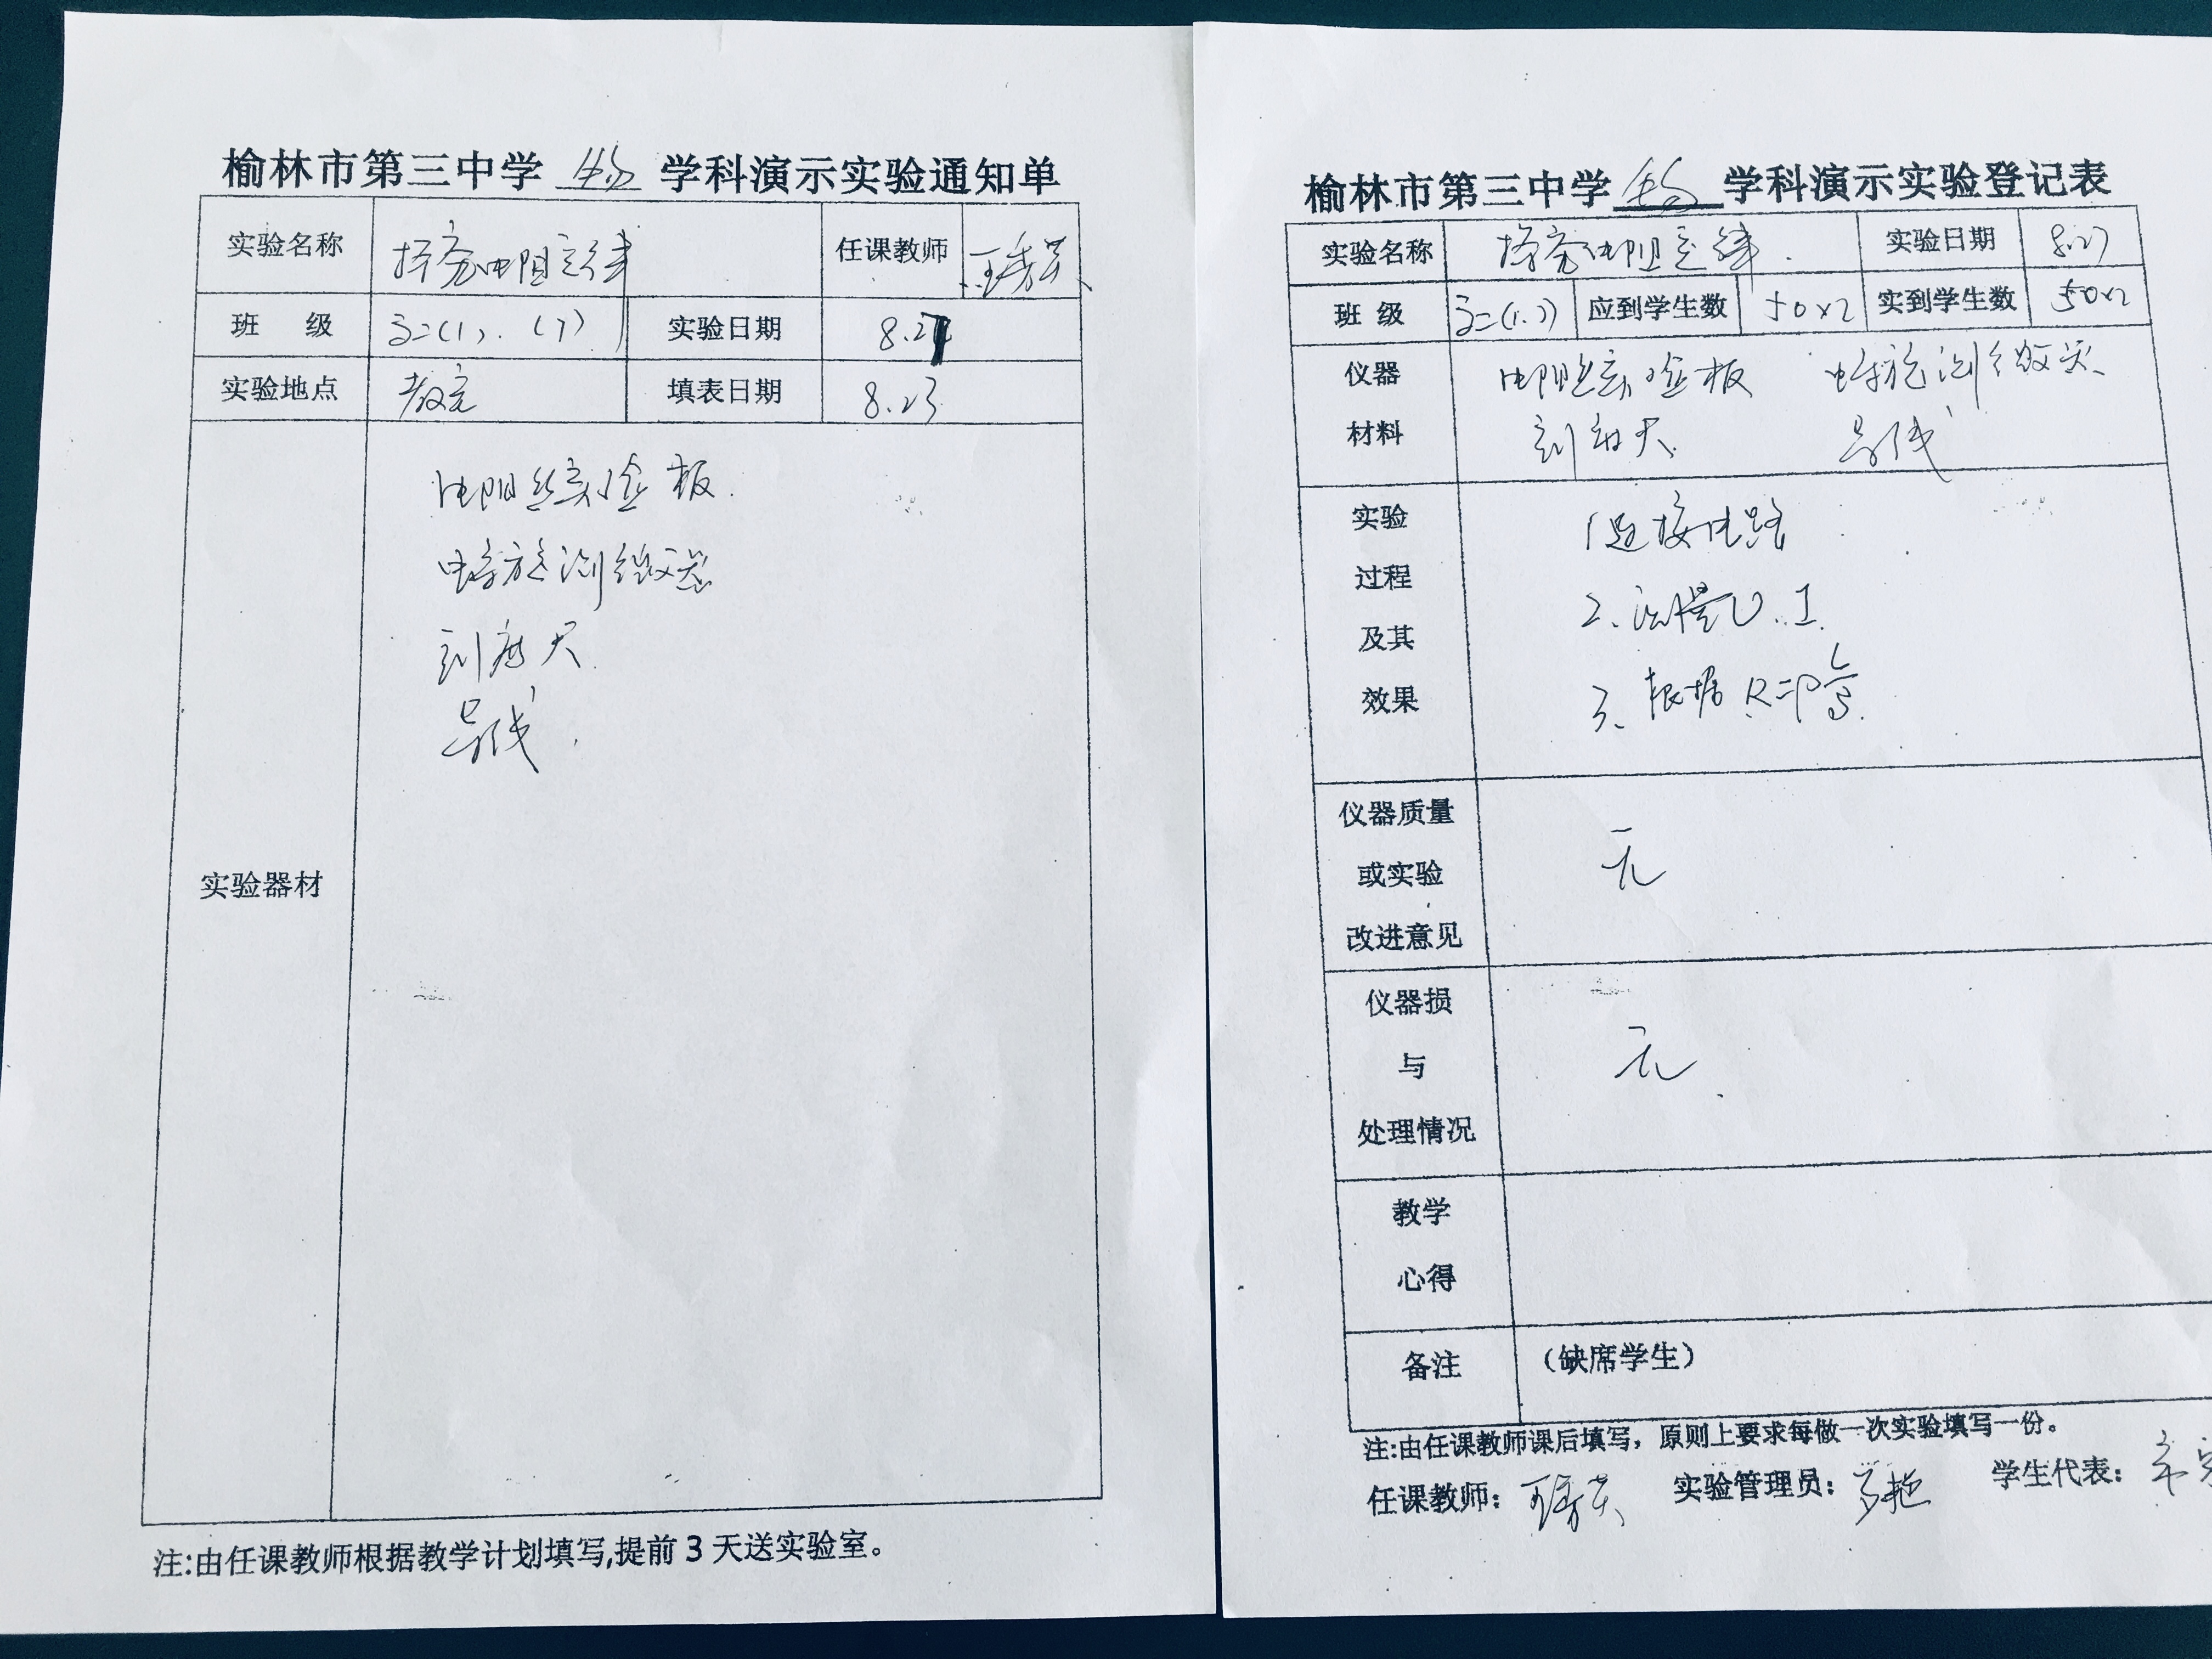 榆林市第三中学 学科演示实验通知单
实验名称 探究电阻定律 任课教师 王秀芳
班 级 高二(1).(7) 实验日期 8.27
实验地点 教室 填表日期 8.23
实验器材
电阻丝实验板.
螺旋测微器
刻度尺.
导线.
注:由任课教师根据教学计划填写,提前3天送实验室。
榆林市第三中学 学科演示实验登记表
实验名称 探究电阻定律. 实验日期 8.27
班 级 高二(1.7) 应到学生数 50×2 实到学生数 50×2
仪器
材料
电阻丝实验板 螺旋测微器
刻度尺 导线
实验
过程
及其
效果
1 连接电路
2、测量U、I.
3、根据 R=ρL/S.
仪器质量
或实验
改进意见
无
仪器损
与
处理情况
无
教学
心得
备注 (缺席学生)
注:由任课教师课后填写，原则上要求每做一次实验填写一份。
任课教师: 王秀芳 实验管理员: 学生代表: